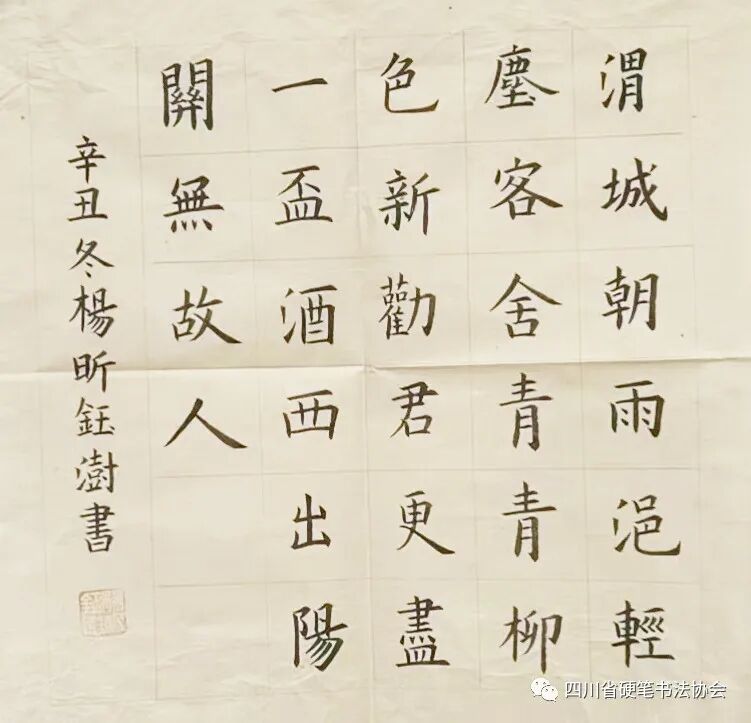 渭城朝雨浥輕
塵客舍青青柳
色新勸君更盡
一盃酒西出陽
關無故人
辛丑冬楊昕鈺澍書
四川省硬笔书法协会